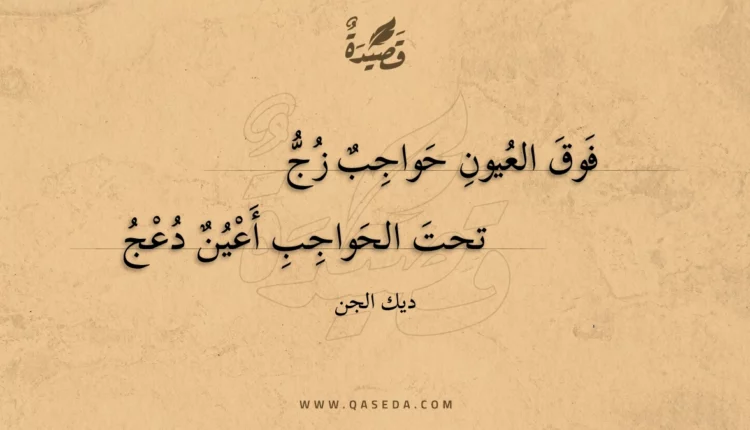 قَصِيدَةٌ
فَوقَ العُيونِ حَواجِبٌ زُجُّ
تحتَ الحَواجِبِ أَعْيُنٌ دُعْجُ
ديك الجن
WWW.QASEDA.COM